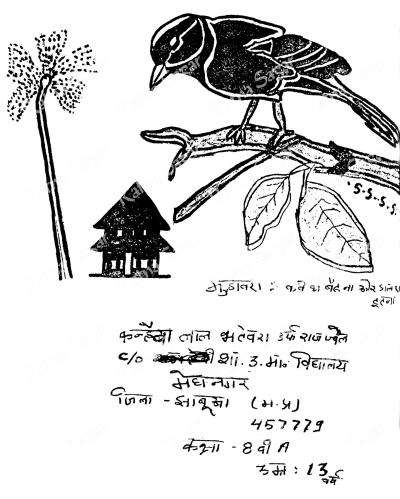 S.S.S.S.
मुहावरा :- कौवे का बैठना और डाल का
टूटना
कन्हैया लाल भटेवरा उर्फ राज पटेल
C/o शा. उ. मा. विद्यालय
मेघनगर
जिला - झाबुआ (म.प्र)
457779
कक्षा - 8 वी A
उम्र : 13 वर्ष